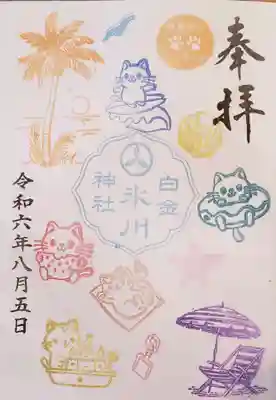 奉拝
白金
氷川
神社
令和六年八月五日